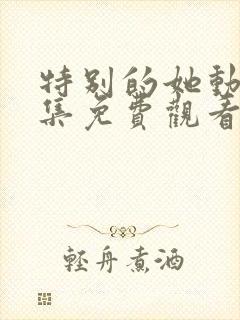 特别的她動
集免費觀看
輕舟煮酒